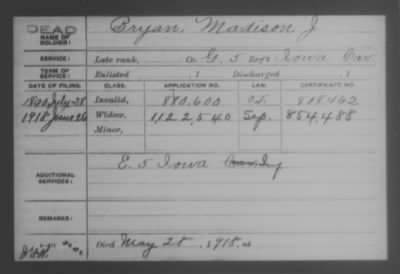 DEAD
NAME OF SOLDIER: Bryan, Madison J.
SERVICE: Late rank, Co. G, 5 Reg't Iowa Cav.
TERM OF SERVICE: Enlisted , 1 Discharged , 1
DATE OF FILING. CLASS. APPLICATION NO. LAW. CERTIFICATE NO.
1890, July 28 Invalid, 880,600 808,462
1918, June 26 Widow, 1,122,540 854,488
Minor,
ADDITIONAL SERVICES: E. 5 Iowa Cav. Inf
REMARKS:
Died May 28, 1918, at